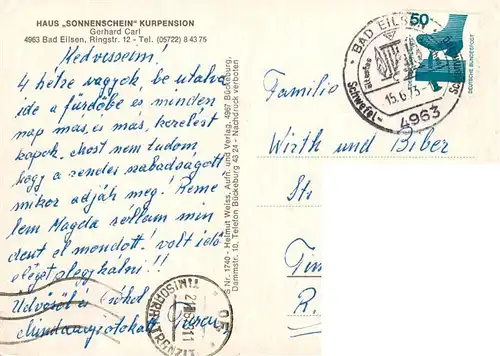 HAUS „SONNENSCHEIN" KURPENSION
Gerhard Carl
4963 Bad Eilsen, Ringstr. 12 - Tel. (05722) 8 43 75
Kedveseim!
4 hétre vagyok be utalva
ide a fürdőbe és minden
nap mas, és más, kezelest
kapok. Most nem tudom,
hogy a rendes szabadságott
mikor adják meg! Reme
lem Magda rollam min
dent el mondott! volt idő
eléget
Üdvözöl és csókol
Mindannyiotokat
Nr. 1740 - Helmut Weiss, Aufn. und Verlag, 4967 Bückeburg,
Dammstr. 10, Telefon Bückeburg 43 24 - Nachdruck verboten
BAD EILSEN
Schwefel-
15.6.73
4963
50
DEUTSCHE BUNDESPOST
Familie
Wirth und Biber
St
Tim
R.
TIMISOARA